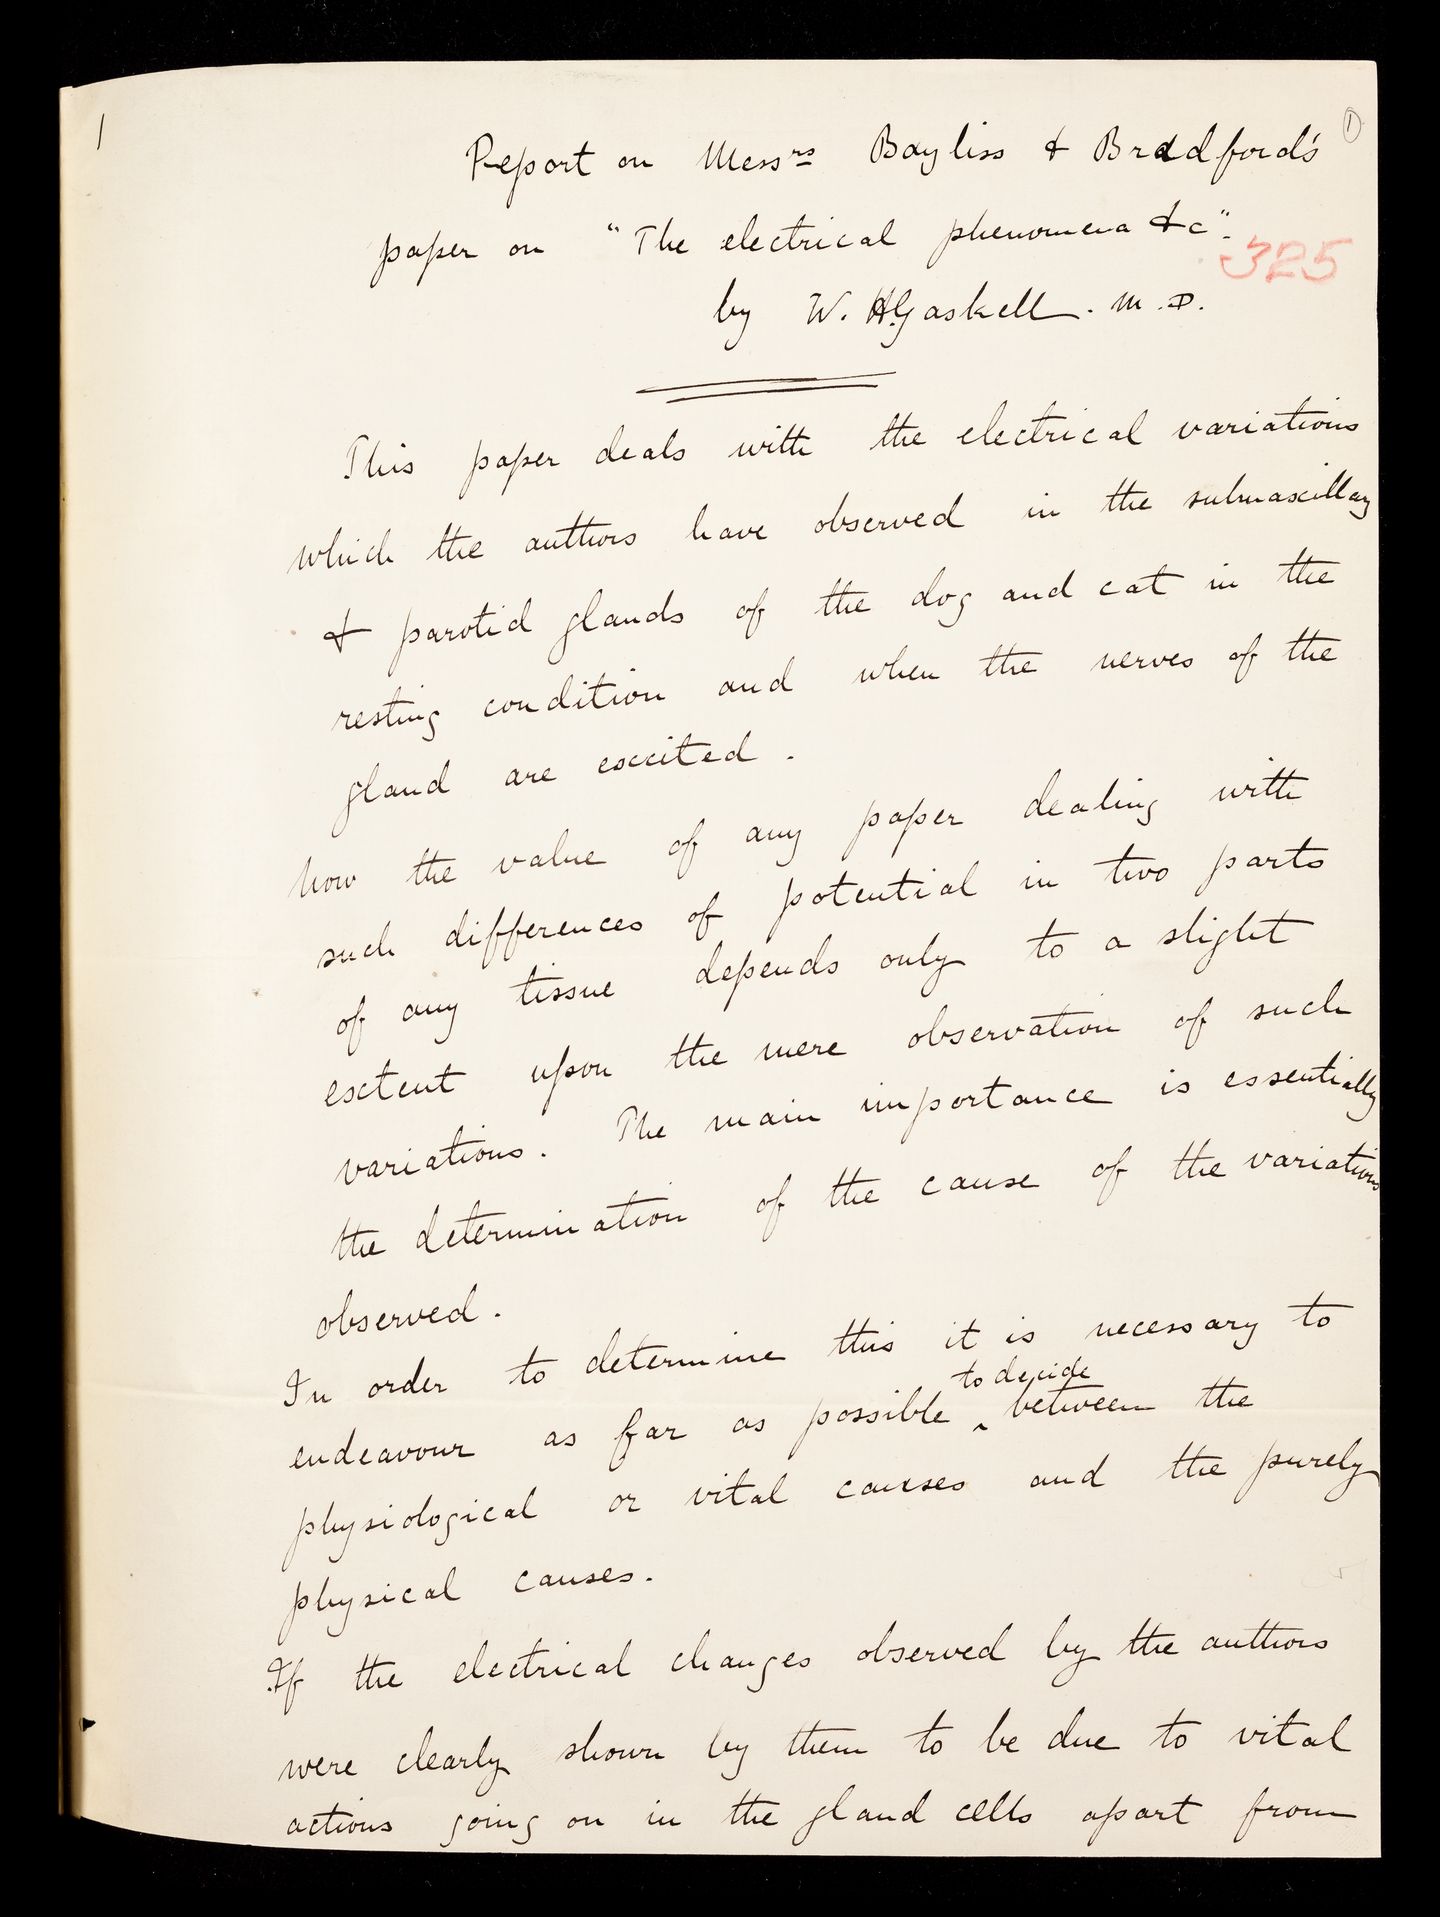 1
①
Report on Messrs Bayliss & Bradford's
paper on "The electrical phenomena &c".
325
by W. H. Gaskell. M.D.
This paper deals with the electrical variations
which the authors have observed in the submaxillary
& parotid glands of the dog and cat in the
resting condition and when the nerves of the
gland are excited.
Now the value of any paper dealing with
such differences of potential in two parts
of any tissue depends only to a slight
extent upon the mere observation of such
variations. The main importance is essentially
the determination of the cause of the variations
observed.
In order to determine this it is necessary to
endeavour as far as possible to decide between the
physiological or vital causes and the purely
physical causes.
If the electrical changes observed by the authors
were clearly shown by them to be due to vital
actions going on in the gland cells apart from